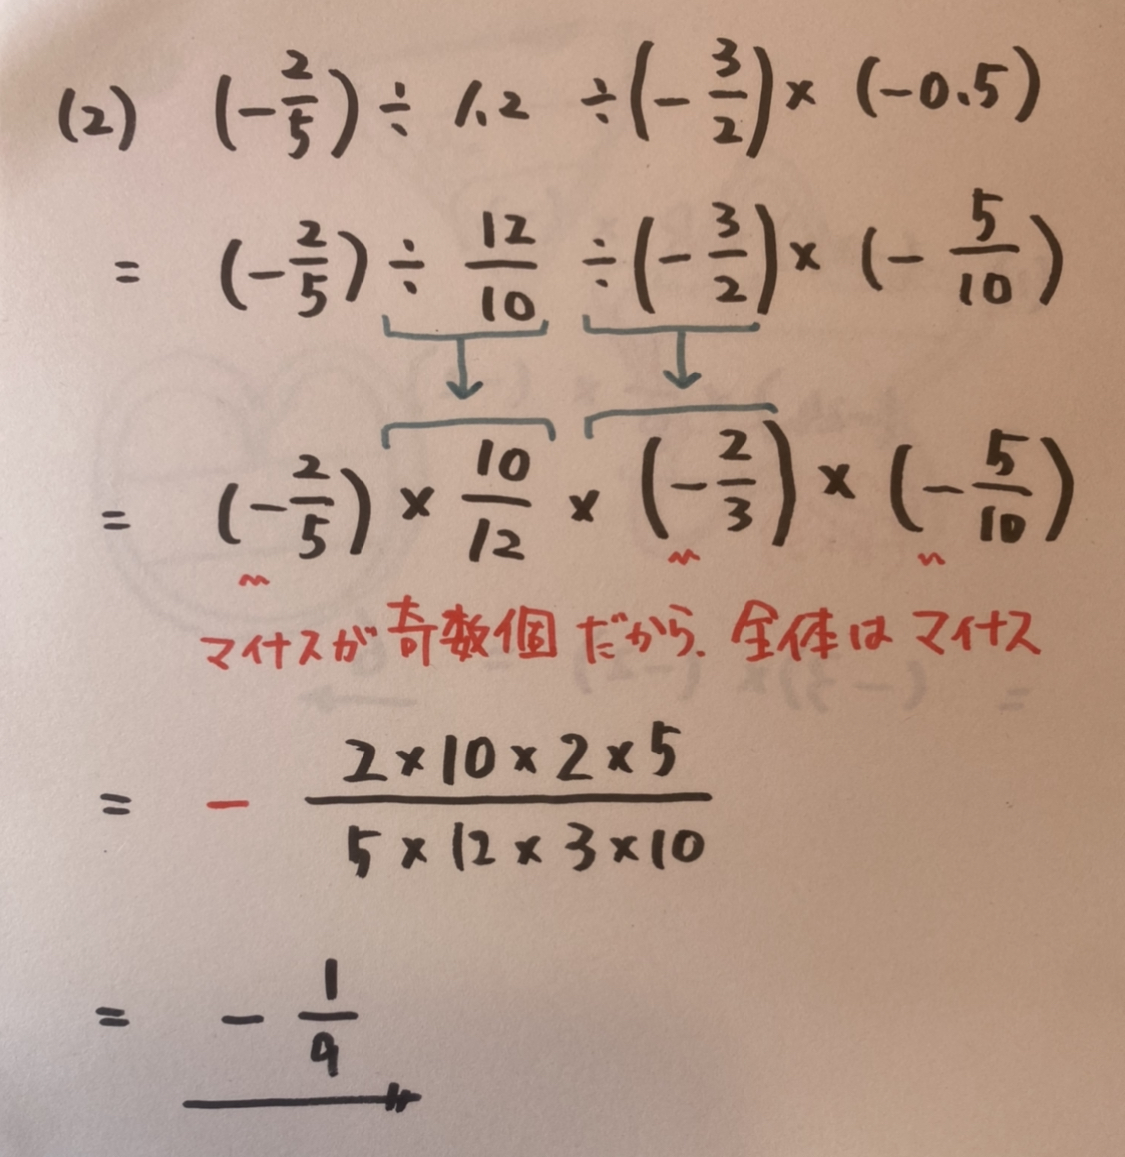 (2) (-2/5) ÷ 1.2 ÷ (-3/2) × (-0.5)
= (-2/5) ÷ 12/10 ÷ (-3/2) × (-5/10)
= (-2/5) × 10/12 × (-2/3) × (-5/10)
マイナスが奇数個だから、全体はマイナス
= - 2×10×2×5 / 5×12×3×10
= - 1/9